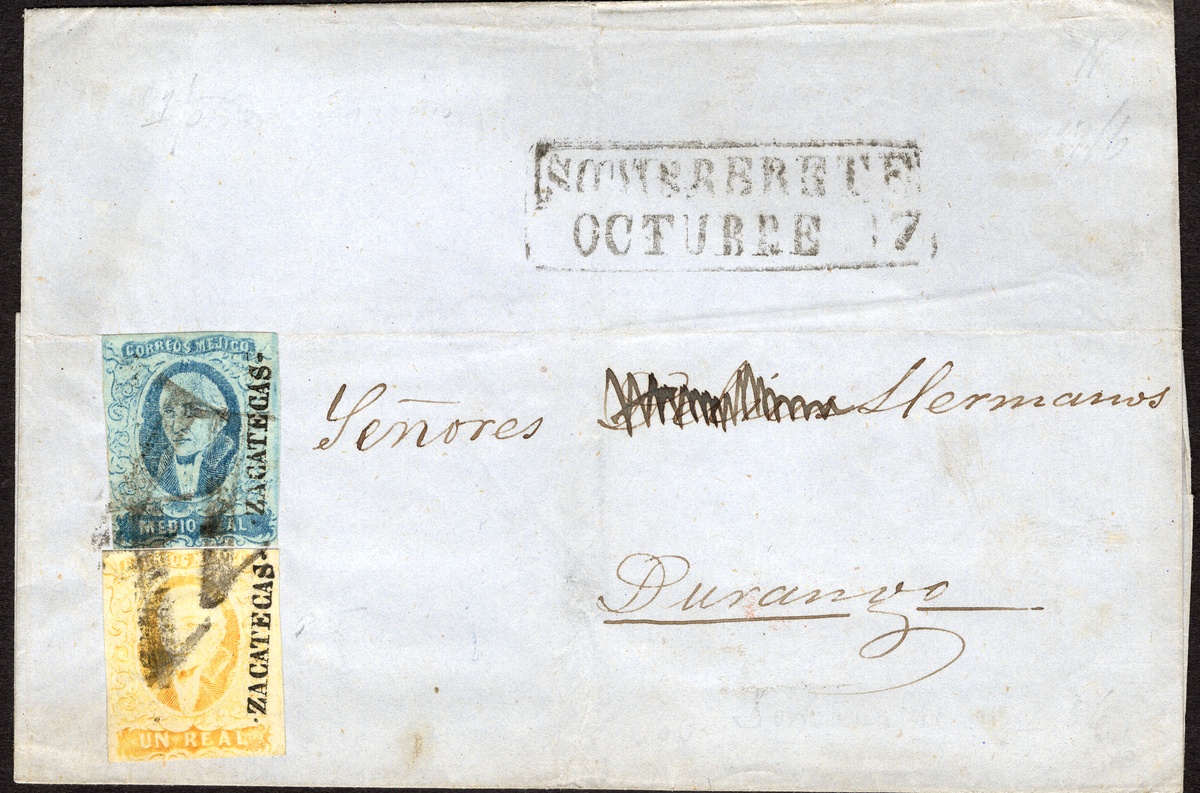 SOMBRERETE
OCTUBRE 17
CORREOS MEJICO
MEDIO REAL
ZACATECAS
Señores Hermanos
Durango
UN REAL
ZACATECAS